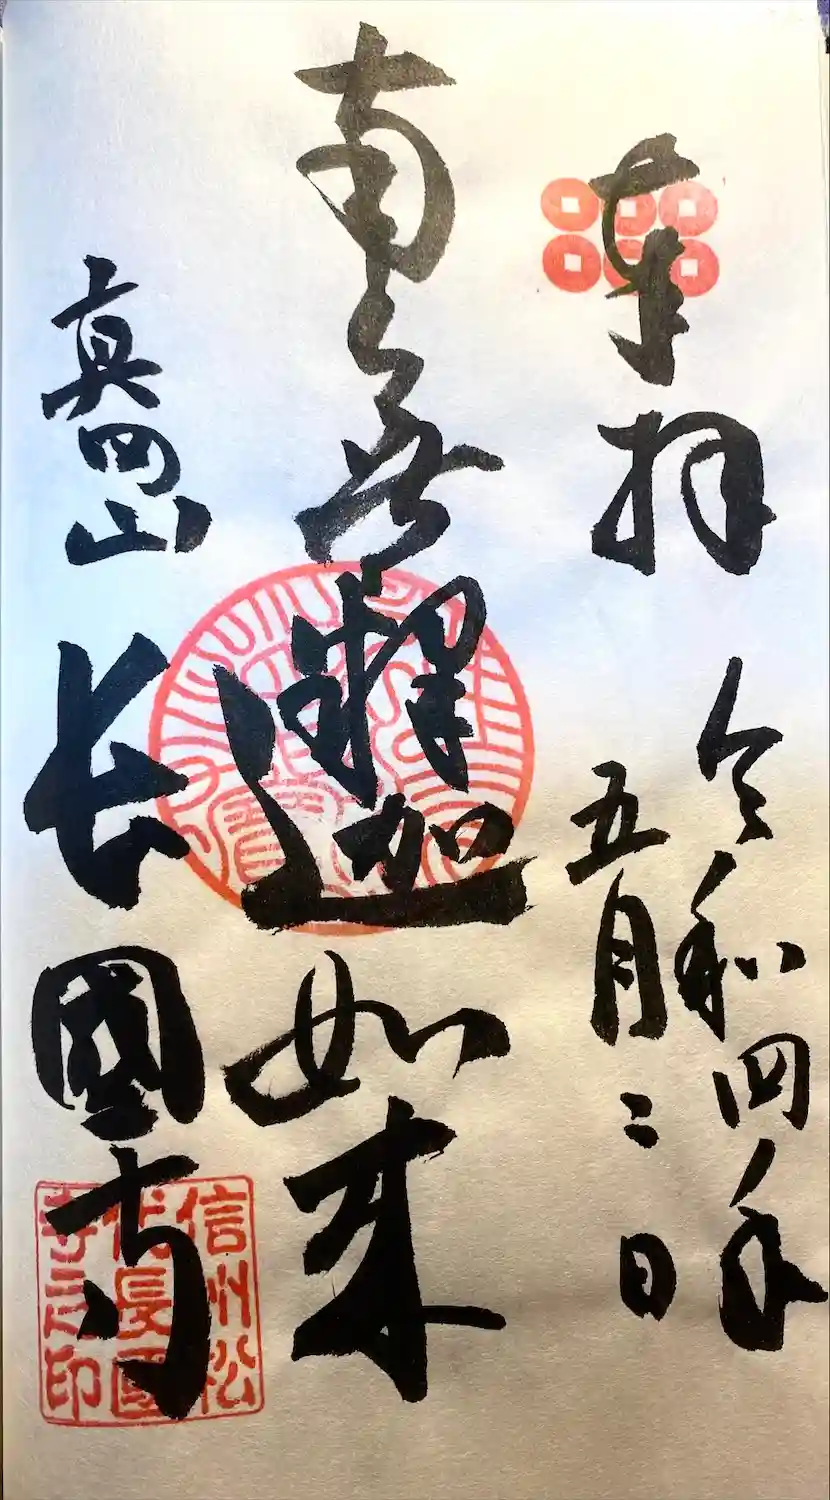 奉拝
令和四年
五月二日
南無釋迦如来
真田山
長國寺
信州松
代長國
寺之印